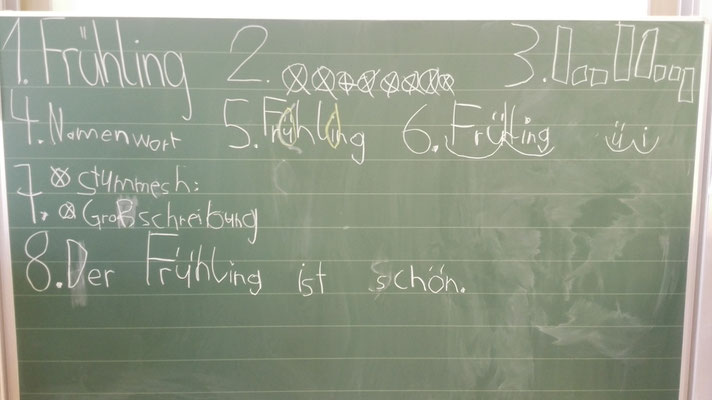 1. Frühling 2. 3.
4. Namenwort 5. Frühling 6. Frühling ü i
7. stummes h:
Großschreibung
8. Der Frühling ist schön.